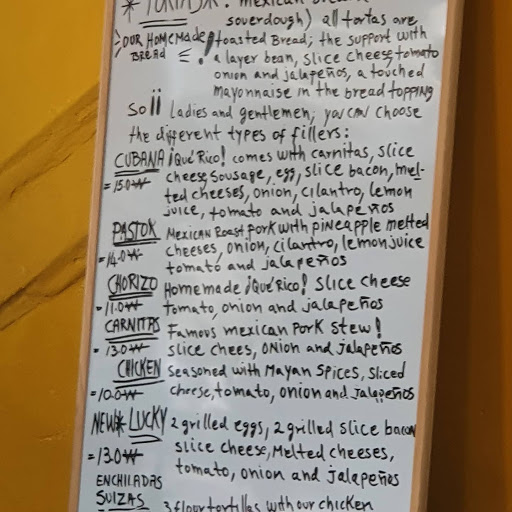 * TORTAS: mexican
souerdough) all tortas are
OUR HOMEMADE toasted Bread; the support with
BREAD a layer bean, slice cheese, tomato
onion and jalapeños, a touched
mayonnaise in the bread topping
So!! Ladies and gentlemen, you can choose
the different types of fillers:
CUBANA ¡Qué Rico! comes with carnitas, slice
cheese, sausage, egg, slice bacon, mel-
=15.0₩ ted cheeses, onion, cilantro, lemon
juice, tomato and jalapeños
PASTOR Mexican Roast pork with pineapple melted
=14.0₩ cheeses, onion, cilantro, lemon juice
tomato and jalapeños
CHORIZO Homemade ¡Qué Rico! slice cheese
=11.0₩ tomato, onion and jalapeños
CARNITAS Famous mexican pork stew!
=13.0₩ slice chees, onion and jalapeños
CHICKEN Seasoned with Mayan spices, sliced
=10.0₩ cheese, tomato, onion and Jalapeños
NEW* LUCKY 2 grilled eggs, 2 grilled slice bacon
=13.0₩ slice cheese, Melted cheeses,
tomato, onion and jalapeños
ENCHILADAS
SUIZAS 3 flour tortillas with our chicken